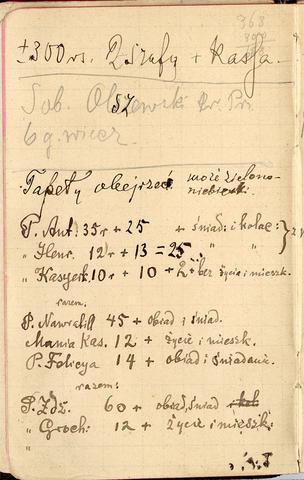 363
300
±300 rs. 2 szafy + Kasja.
Sob. Olszewski
sz
6 g. wiecz.
Tapety obejrzeć może zielono-
niebiesk.
P. Ant. 35 r + 25 + śniad: i kolac:
" Henr. 12 r + 13 = 25 " "
" Kasyerk. 10 r + 10 + 2 + bez życia i mieszk.
razem.
P. Nawrck 45 + obiad i śniad.
Mania Kas. 12 + życie i mieszk.
P. Felicya 14 + obiad i śniadanie.
razem:
P. Zdz. 60 + obiad, śniad
" Groch: 12 + życie i mieszk:
"